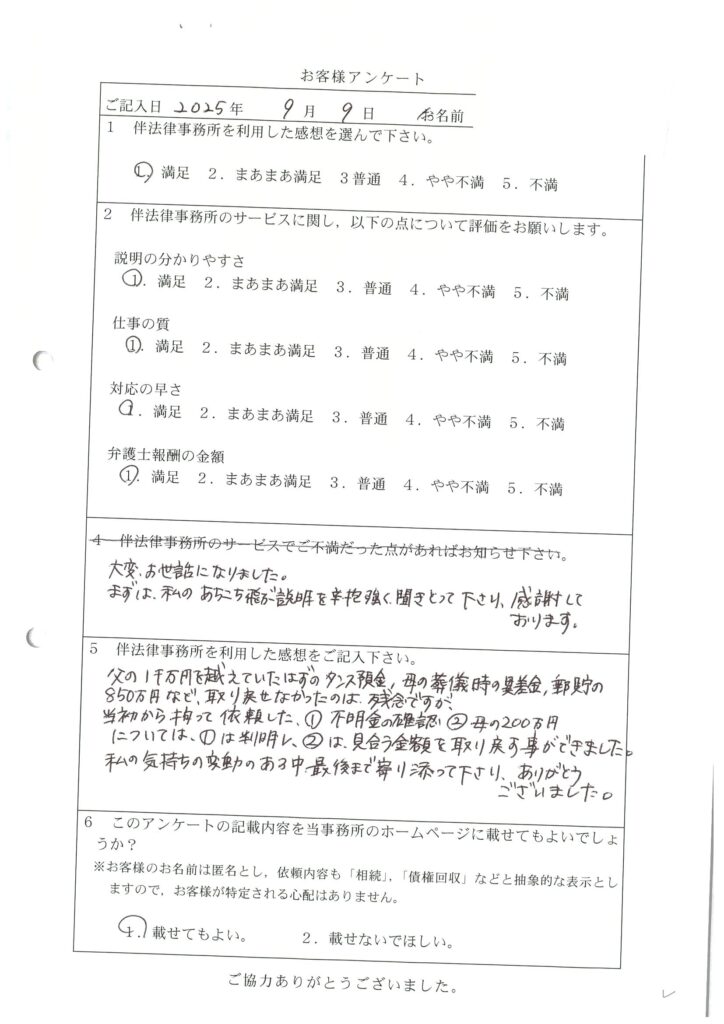 お客様アンケート
ご記入日 2025年 9月 9日 お名前
1 伴法律事務所を利用した感想を選んで下さい。
1. 満足 2．まあまあ満足 3普通 4．やや不満 5．不満
2 伴法律事務所のサービスに関し，以下の点について評価をお願いします。
説明の分かりやすさ
1. 満足 2．まあまあ満足 3．普通 4．やや不満 5．不満
仕事の質
1. 満足 2．まあまあ満足 3．普通 4．やや不満 5．不満
対応の早さ
1. 満足 2．まあまあ満足 3．普通 4．やや不満 5．不満
弁護士報酬の金額
1. 満足 2．まあまあ満足 3．普通 4．やや不満 5．不満
4 伴法律事務所のサービスでご不満だった点があればお知らせ下さい。
大変、お世話になりました。
まずは、私の あちこち飛ぶ説明を辛抱強く聞きとって下さり、感謝して
おります。
5 伴法律事務所を利用した感想をご記入下さい。
父の1千万円を越えていたはずのタンス預金，母の葬儀時の香典金，郵貯の
850万円など、取り戻せなかったのは、残念ですが、
当初から拘って依頼した、① 不明金の確認 ② 母の200万円
については、①は判明し、②は、見合う金額を取り戻す事ができました。
私の気持ちの変動のある中、最後まで寄り添って下さり、ありがとう
ございました。
6 このアンケートの記載内容を当事務所のホームページに載せてもよいでしょ
うか？
※お客様のお名前は匿名とし，依頼内容も「相続」，「債権回収」などと抽象的な表示とし
ますので，お客様が特定される心配はありません。
1. 載せてもよい。 2．載せないでほしい。
ご協力ありがとうございました。